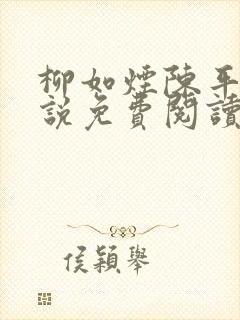 柳如煙陳平
說免費閱讀
侯穎舉